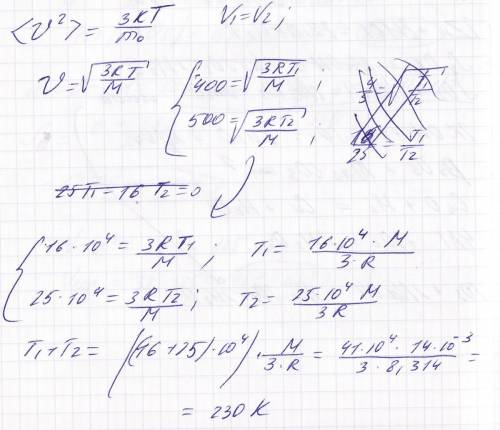 <v²> = 3kT/m₀   V₁=V₂;
v = √(3RT/M)   { 400 = √(3RT₁/M);   4/3 = √(T₁/T₂)
500 = √(3RT₂/M);   16/25 = T₁/T₂
25T₁ - 16T₂ = 0
{ 16·10⁴ = 3RT₁/M;   T₁ = 16·10⁴·M/3·R
25·10⁴ = 3RT₂/M;   T₂ = 25·10⁴ M/3R
T₁+T₂ = ((16+25)·10⁴)·M/3·R = 41·10⁴·14·10⁻³/3·8,314 =
= 230 K